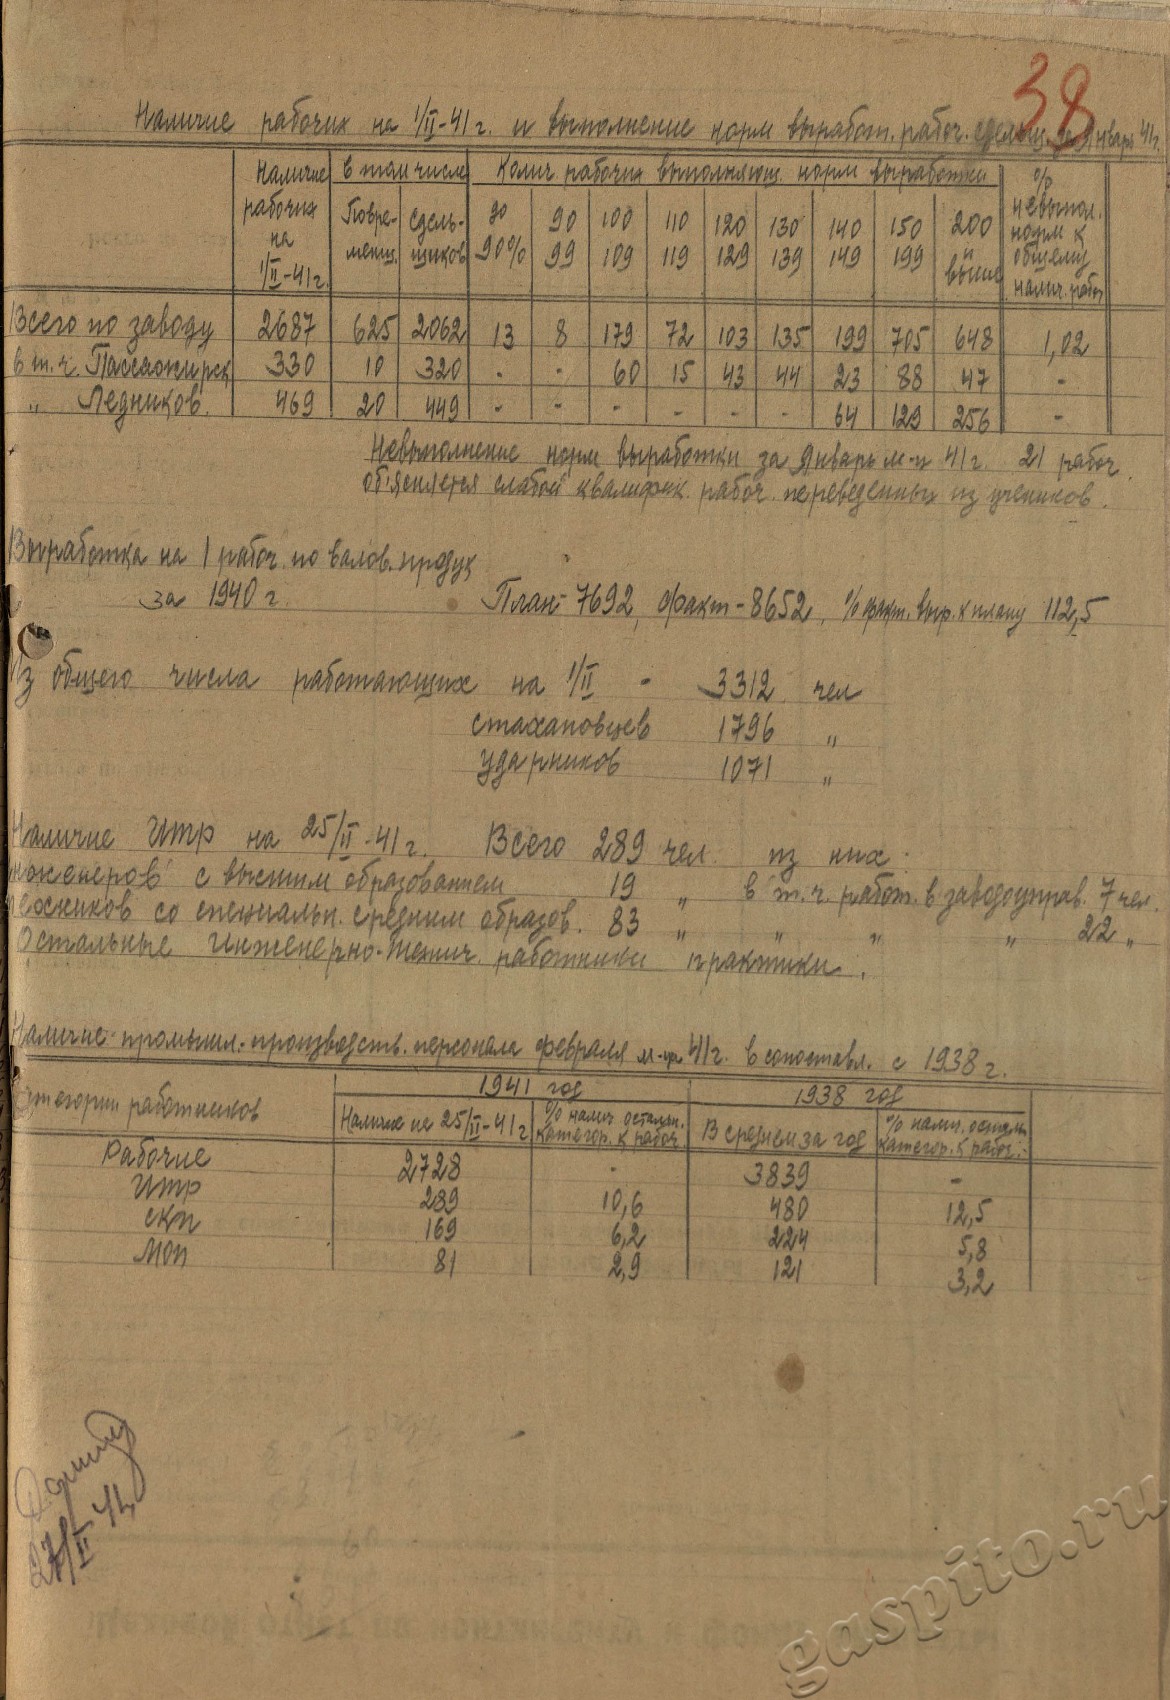 38
Наличие рабочих на 1/II-41 г. и выполнение норм выработ. рабоч. сдельщ. за Январь 41г.
Наличие рабочих на 1/II-41г. | в том числе | Колич рабочих выполняющ. нормы выработки | % невыпол. норм к общему налич. рабоч
Повре-менщ. | Сдель-щиков | до 90% | 90 99 | 100 109 | 110 119 | 120 129 | 130 139 | 140 149 | 150 199 | 200 и выше
Всего по заводу | 2687 | 625 | 2062 | 13 | 8 | 179 | 72 | 103 | 135 | 199 | 705 | 648 | 1,02
в т.ч. Пассажирск | 330 | 10 | 320 | - | - | 60 | 15 | 43 | 44 | 23 | 88 | 47 | -
„ Ледников. | 469 | 20 | 449 | - | - | - | - | - | - | 64 | 129 | 256 | -
Невыполнение норм выработки за Январь м-ц 41 г. 21 рабоч.
об'ясняется слабой квалифик. рабоч. переведенных из учеников.
Выработка на 1 рабоч. по валов. продук
за 1940 г. План-7692, факт-8652, % факт. выр. к плану 112,5
Из общего числа работающих на 1/II - 3312 чел
стахановцев 1796 „
ударников 1071 „
Наличие ИТР на 25/II-41 г. Всего 289 чел. из них:
инженеров с высшим образованием 19 „ в т.ч. работ. в заводоуправ. 7 чел.
техников со специальн. средним образов. 83 „ „ „ „ 22 „
Остальные инженерно-технич. работники практики.
Наличие промышл.-производств. персонала февраля м-ца 41г. в сопоставл. с 1938 г.
Категории работников | 1941 год | 1938 год
Наличие на 25/II-41 г | % налич остальн. категор. к рабоч. | В среднем за год | % налич. осталь. категор. к рабоч.
Рабочие | 2728 | - | 3839 | -
ИТР | 289 | 10,6 | 480 | 12,5
СКП | 169 | 6,2 | 224 | 5,8
МОП | 81 | 2,9 | 121 | 3,2
27/II 41
gaspito.ru